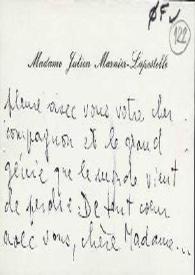 ØF✓
122
Madame Julien Marnier-Lapostolle
pleure avec vous votre cher
compagnon et le grand
génie que le monde vient
de perdre. De tout cœur
avec vous, chère Madame...